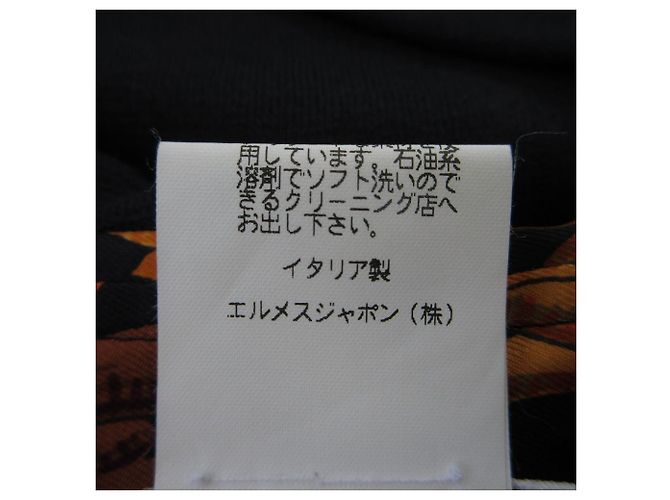 用しています。石油系
溶剤でソフト洗いので
きるクリーニング店へ
お出し下さい。
イタリア製
エルメスジャポン（株）